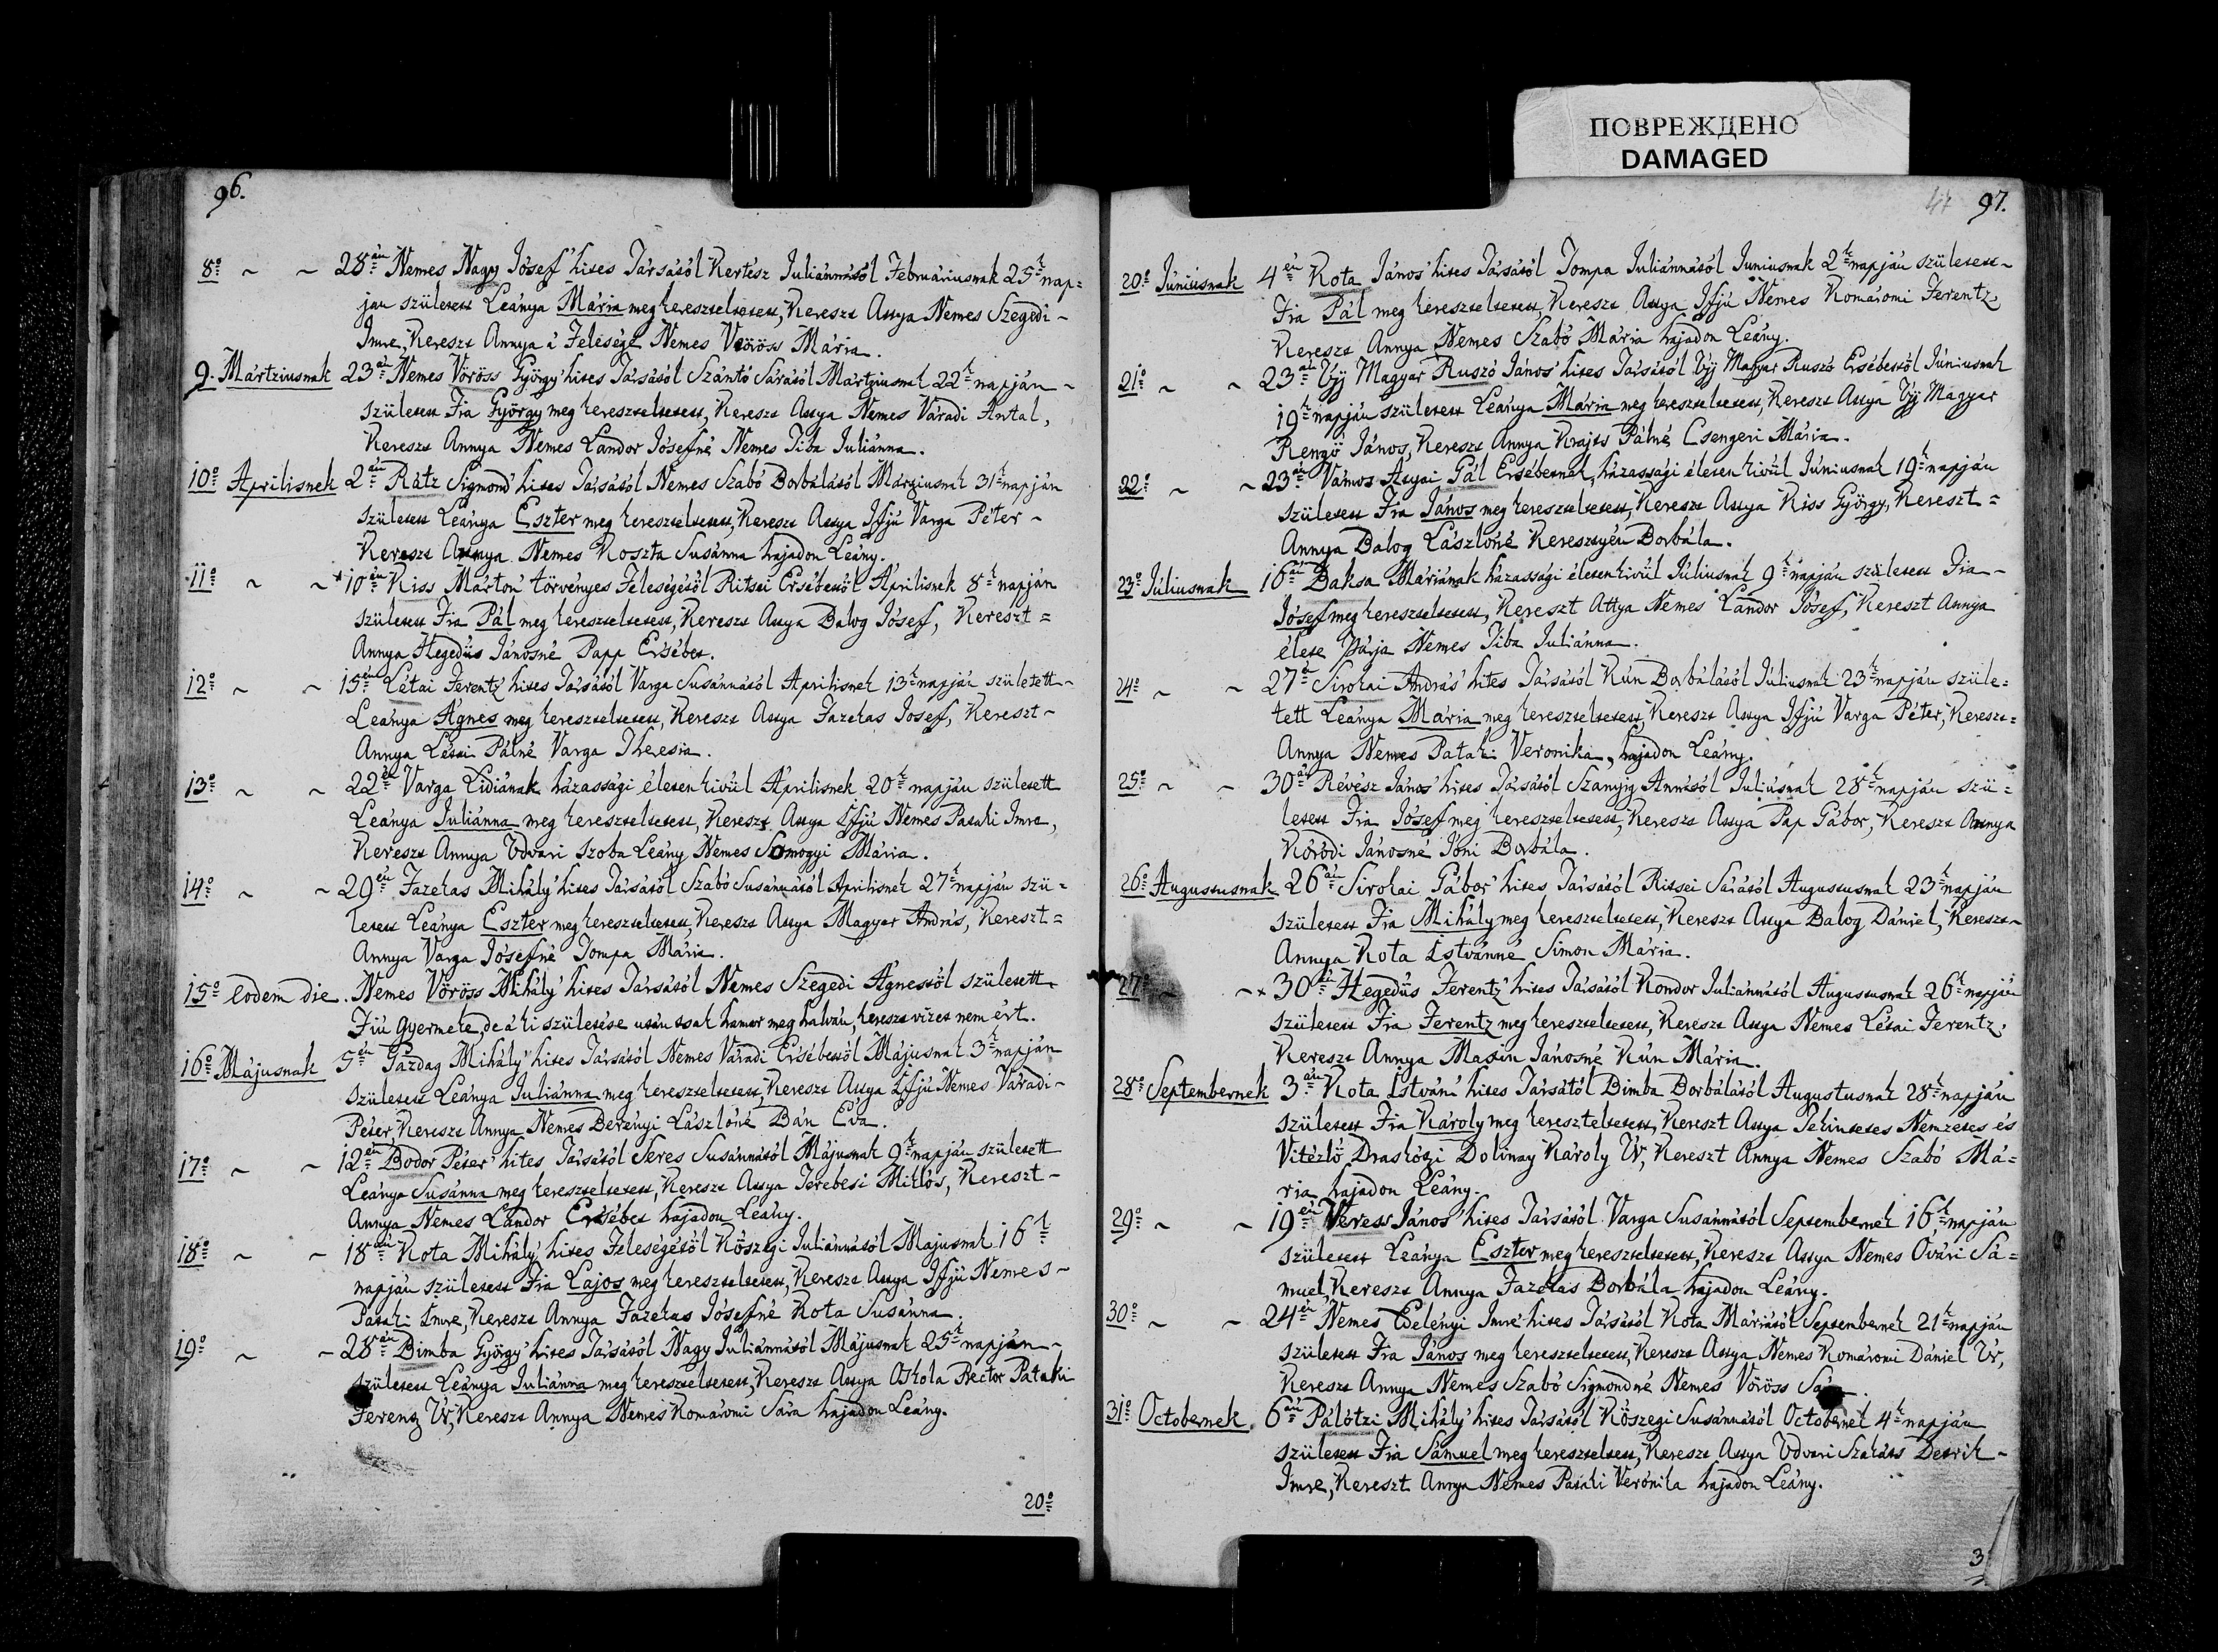 ПОВРЕЖДЕНО
DAMAGED
96.
8º ~ ~ 28án Nemes Nagy Jósef' hites Társától Kertész Juliánnától Februáriusnak 25k nap=
ján született Leánya Mária meg kereszteltetett, Kereszt Attya Nemes Szegedi -
Imre, Kereszt Annya à Felesége Nemes Vöröss Mária.
9. Mártziusnak 23án Nemes Vöröss György' hites Társától Szántó Sárától Mártziusnak 22k napján -
született Fia György meg kereszteltetett, Kereszt Attya Nemes Váradi Antal,
Kereszt Annya Nemes Lándor Jósefné Nemes Tiba Juliánna.
10º Aprilisnek 2án Rátz Sigmond' hites Társától Nemes Szabó Borbálától Márziusnak 31k napján
született Leánya Eszter meg kereszteltetett, Kereszt Attya Ifjú Varga Péter -
Kereszt Annya Nemes Koszta Susánna hajadon Leány.
11º ~ ~ + 10én Kiss Márton' törvényes Feleségétől Ritsei Ersébettől Áprilisnek 8k napján
született Fia Pál meg kereszteltetett, Kereszt Attya Balog Jósef, Kereszt =
Annya Hegedüs Jánosné Papp Ersébet.
12º ~ ~ 15én Létai Ferentz' hites Társától Varga Susánnától Aprilisnek 13k napján született -
Leánya Ágnes meg kereszteltetett, Kereszt Attya Fazekas Josef, Kereszt -
Annya Létai Pálné Varga Theresia.
13º ~ ~ 22én Varga Lidiának házassági életen kivül Áprilisnek 20k napján született
Leánya Juliánna meg kereszteltetett, Kereszt Attya Ifjú Nemes Pataki Imre,
Kereszt Annya Udvari Szoba Leány Nemes Somogyi Mária.
14º ~ ~ 29én Fazekas Mihály' hites Társától Szabó Susánnától Aprilisnek 27k napján szü -
letett Leánya Eszter meg kereszteltetett, Kereszt Attya Magyar András, Kereszt =
Annya Varga Jósefné Tompa Mária.
15º Eodem die. Nemes Vöröss Mihály' hites Társától Nemes Szegedi Ágnestől született -
Fiú Gyermeke, de á ki születése után tsak hamar meg halván, kereszt vizet nem ért.
16º Májusnak 5én Gazdag Mihály' hites Társától Nemes Váradi Ersébettől Májusnak 3k napján
született Leánya Juliánna meg kereszteltetett, Kereszt Attya Ifjú Nemes Váradi -
Péter, Kereszt Annya Nemes Berényi Lászlóné Bán Éva.
17º ~ ~ 12én Bodor Péter' hites Társától Seres Susánnától Májusnak 9k napján született
Leánya Susánna meg kereszteltetett, Kereszt Attya Terebesi Miklós, Kereszt -
Annya Nemes Lándor Ersébet hajadon Leány.
18º ~ ~ 18án Kota Mihály' hites Feleségétől Kőszegi Juliánnától Majusnak 16k
napján született Fia Lajos meg kereszteltetett, Kereszt Attya Ifjú Nemes -
Pataki Imre, Kereszt Annya Fazekas Jósefné Kota Susánna.
19º ~ ~ 28án Bimba György' hites Társától Nagy Juliánnától Májusnak 25k napján -
született Leánya Juliánna meg kereszteltetett, Kereszt Attya Oskola Rector Pataki
Ferentz Úr, Kereszt Annya Nemes Komáromi Sára hajadon Leány.
20º
97.
20º Júniusnak 4én Kota János' hites Társától Tompa Juliánnától Juniusnak 2k napján született -
Fia Pál meg kereszteltetett, Kereszt Attya Ifjú Nemes Komáromi Ferentz,
Kereszt Annya Nemes Szabó Mária hajadon Leány.
21º ~ ~ 23án Új Magyar Ruszó János' hites Társától Új Magyar Ruszó Ersébettől Júniusnak
19k napján született Leánya Mária meg kereszteltetett, Kereszt Attya Új Magyar
Rengő János, Kereszt Annya Krajts Pálné Csengeri Mária.
22º ~ ~ 23án Vámos Atyai Gál Ersébetnek, házassági életen kivül Júniusnak 19k napján
született Fia János meg kereszteltetett, Kereszt Attya Kiss György, Kereszt =
Annya Balog Lászlóné Keresztyén Borbála.
23º Júliusnak 16án Baksa Máriának házassági életen kivül Júliusnak 9k napján született Fia -
Jósef meg kereszteltetett, Kereszt Attya Nemes Lándor Jósef, Kereszt Annya
élete Párja Nemes Tiba Juliánna.
24º ~ ~ 27én Sirokai András' hites Társától Kún Borbálától Júliusnak 23k napján szüle=
tett Leánya Mária meg kereszteltetett, Kereszt Attya Ifjú Varga Péter, Kereszt=
Annya Nemes Pataki Veronika, hajadon Leány.
25º ~ ~ 30án Révész János' hites Társától Szanyig Annától Juliúsnak 28k napján szü =
letett Fia Jósef meg kereszteltetett, Kereszt Attya Pap Gábor, Kereszt Annya
Kóródi Jánosné Jóni Borbála.
26º Augustusnak 26án Sirokai Gábor' hites Társától Ritsei Sárától Augustusnak 23k napján
született Fia Mihály meg kereszteltetett, Kereszt Attya Balog Dániel, Kereszt -
Annya Kota Istvánné Simon Mária.
27º ~ ~ + 30án Hegedüs Ferentz' hites Társától Kondor Juliánnától Augustusnak 26k napján
született Fia Ferentz meg kereszteltetett, Kereszt Attya Nemes Létai Ferentz,
Kereszt Annya Masin Jánosné Kún Mária.
28º Septembernek 3án Kota István' hites Társától Bimba Borbálától Augustusnak 28k napján
született Fia Károly meg kereszteltetett, Kereszt Attya Tekintetes Nemzetes és
Vitézlő Draskótzi Dolinay Károly Úr, Kereszt Annya Nemes Szabó Má=
ria hajadon Leány.
29º ~ ~ 19én Veress János' hites Társától Varga Susánnától Septembernek 16k napján
született Leánya Eszter meg kereszteltetett, Kereszt Attya Nemes Óvári Sá =
muel, Kereszt Annya Fazekas Borbála hajadon Leány.
30º ~ ~ 24én Nemes Edelényi Imre' hites Társától Kota Máriától Septembernek 21k napján
született Fia János meg kereszteltetett, Kereszt Attya Nemes Komáromi Dániel Úr,
Kereszt Annya Nemes Szabó Sigmondné Nemes Vöröss
31º Octobernek 6án Pálótzi Mihály' hites Társától Kőszegi Susánnától Octobernek 4k napján
született Fia Sámuel meg kereszteltetett, Kereszt Attya Udvari Szakáts Detrik -
Imre, Kereszt Annya Nemes Pataki Verónika hajadon Leány.
3